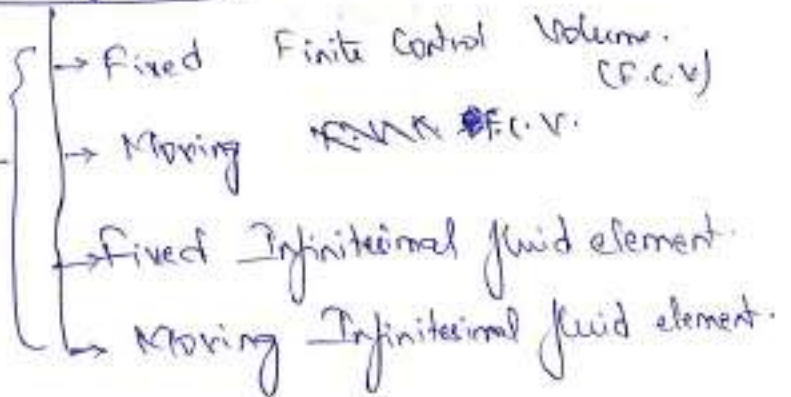 → Fixed Finite Control Volume.
(F.C.V)
→ Moving F.C.V.
→ Fixed Infinitesimal fluid element.
→ Moving Infinitesimal fluid element.